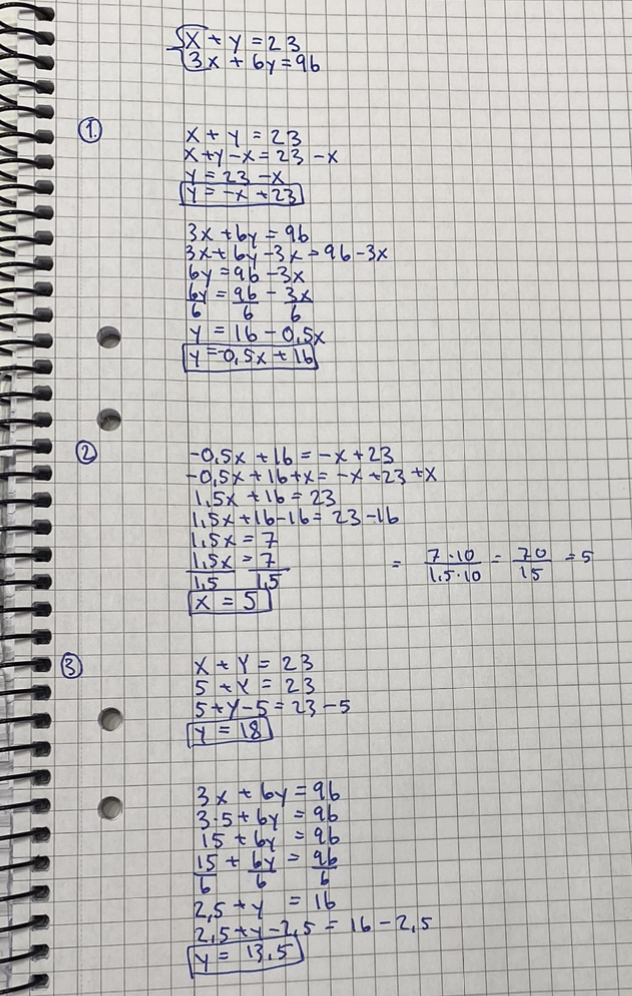 x + y = 23
3x + 6y = 96
1.
x + y = 23
x+y-x = 23 -x
y = 23 -x
y = -x +23
3x +6y = 96
3x+6y-3x = 96-3x
6y = 96 -3x
6y/6 = 96/6 - 3x/6
y = 16 - 0,5x
y = -0,5x + 16
2
-0,5x +16 = -x +23
-0,5x +16 +x = -x +23 +x
1,5x +16 = 23
1,5x +16-16 = 23 -16
1,5x = 7
1,5x/1,5 = 7/1,5 = 7·10/1,5·10 = 70/15 = 5
x = 5
3
x + y = 23
5 + y = 23
5+y-5 = 23 -5
y = 18
3x + 6y = 96
3·5 + 6y = 96
15 + 6y = 96
15/6 + 6y/6 = 96/6
2,5 + y = 16
2,5 +y -2,5 = 16 - 2,5
y = 13,5